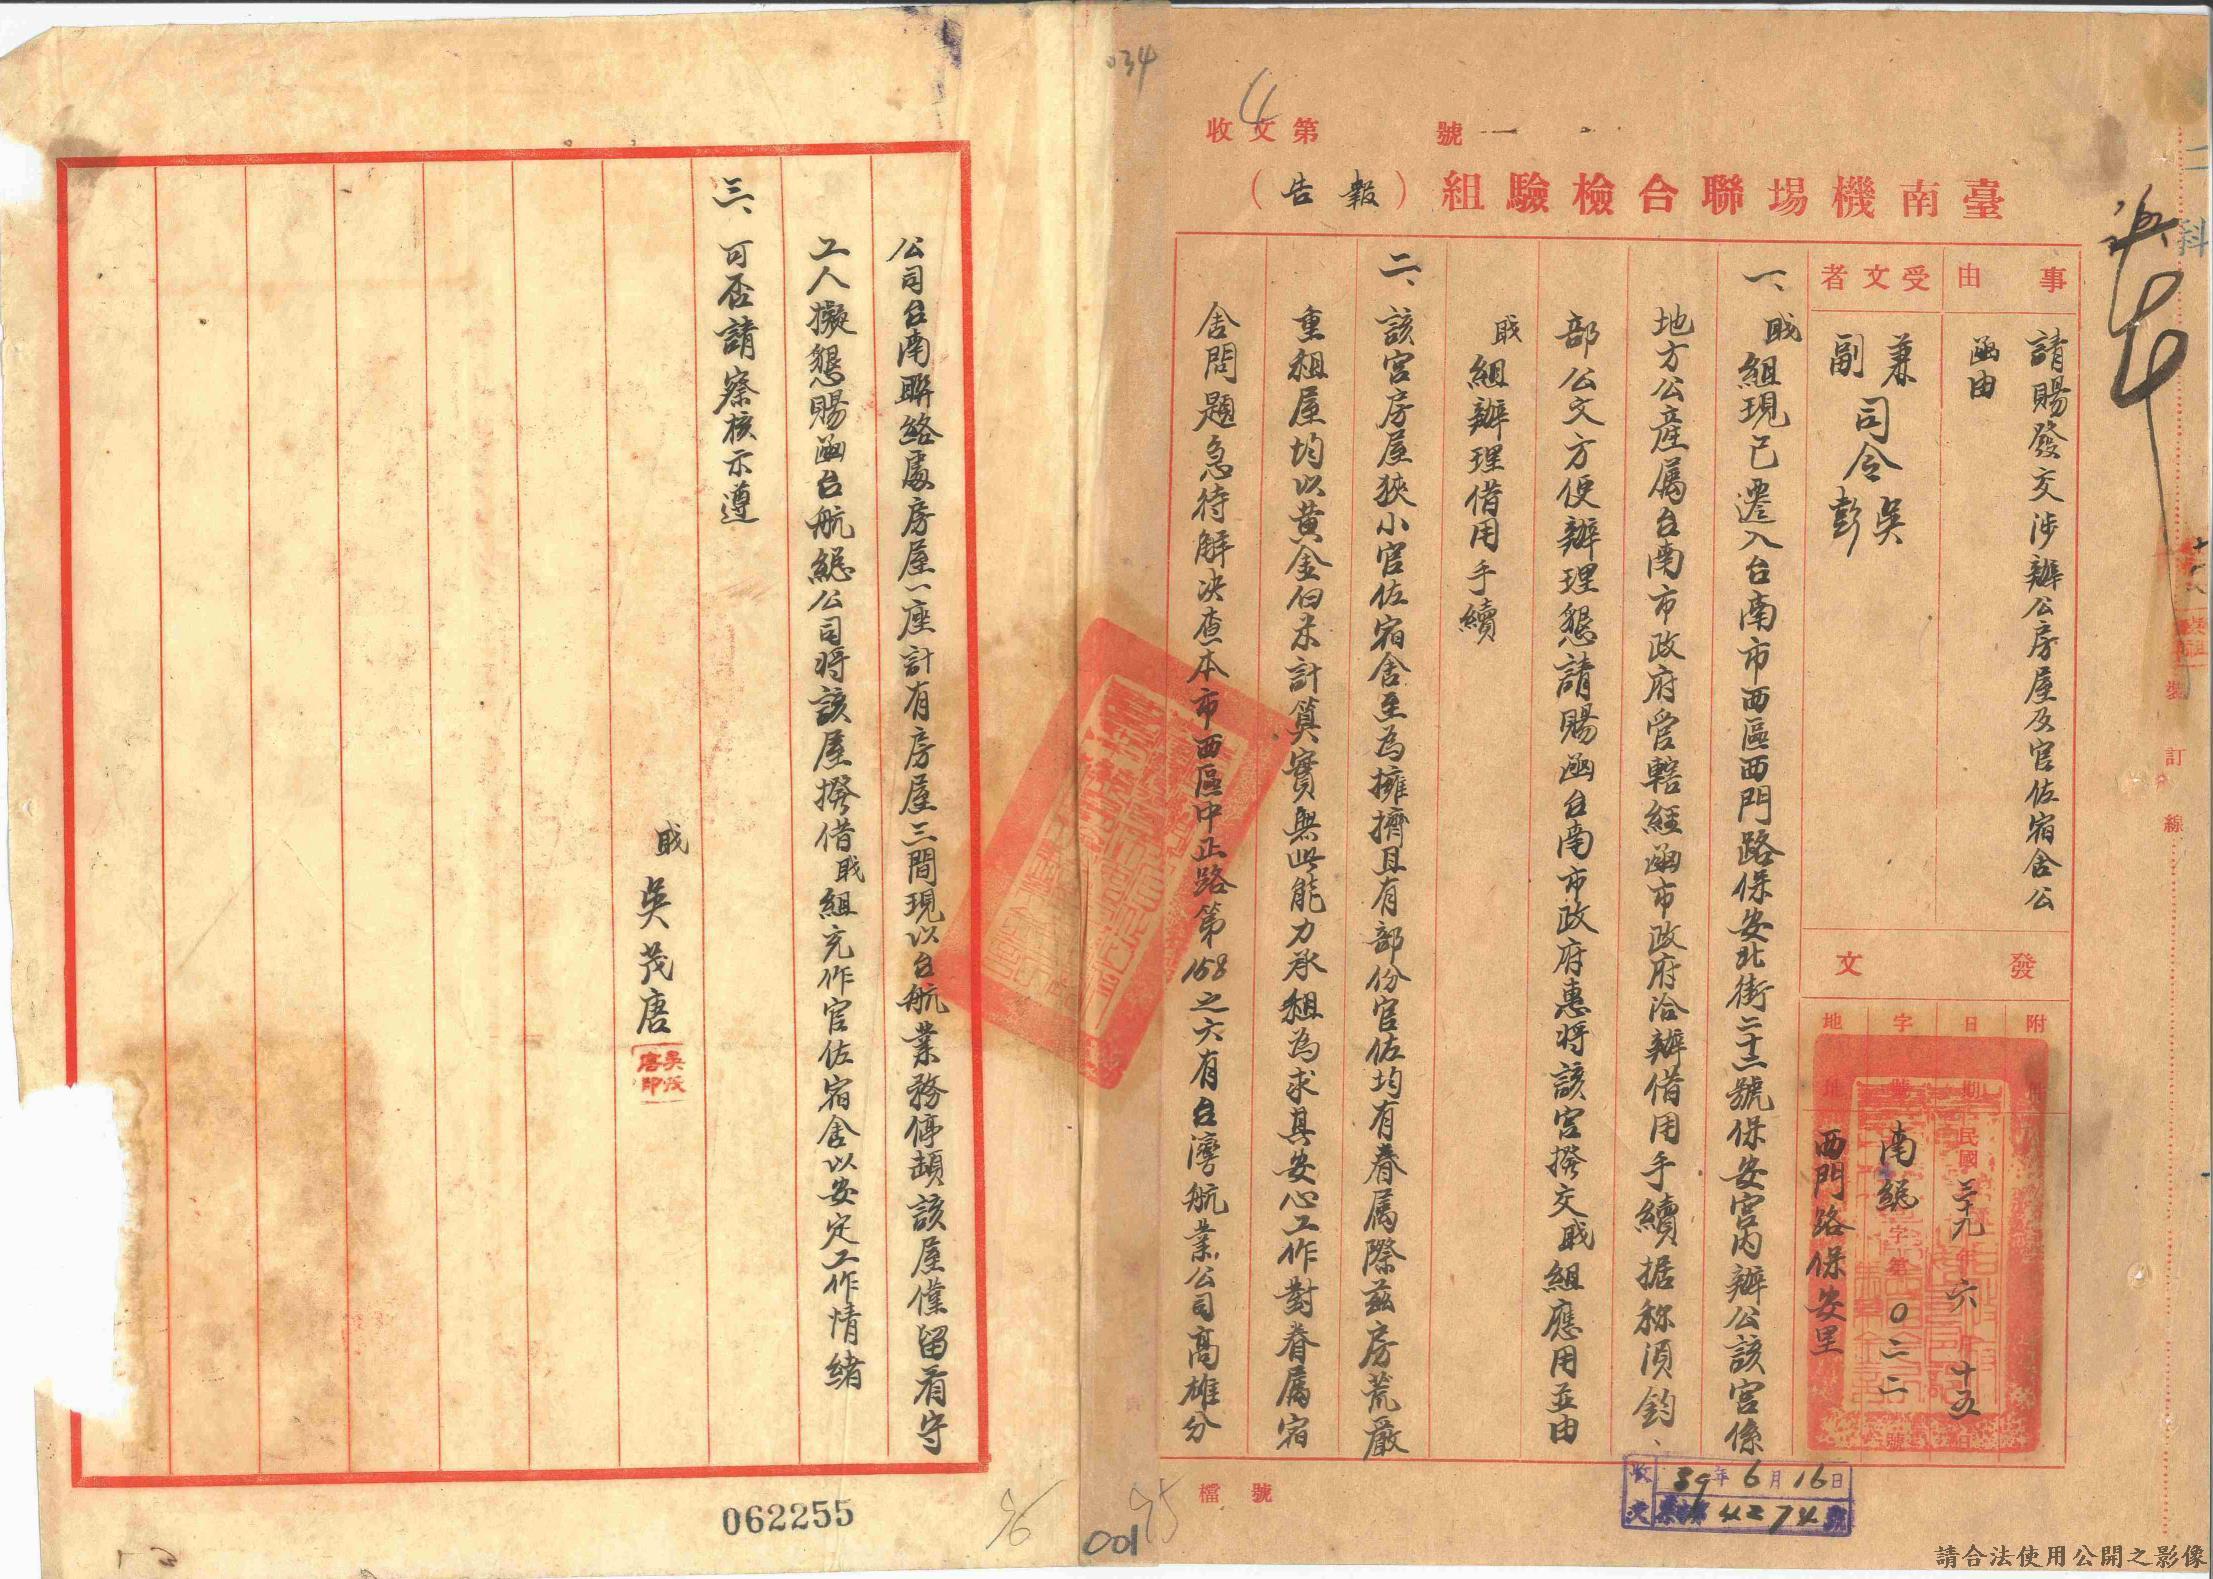 034
4
收文第 號
臺南機場聯合檢驗組（報告）
二科
事由
請賜發交涉辦公房屋及官佐宿舍公
函由
受文者
兼司令吳
副司令彭
發文
附
日期
字號
地
民國三十九年六十五日
南總字第0二二號
西門路保安里
一、戝組現已遷入台南市西區西門路保安北街二十二號保安宮內辦公該宮係
地方公產屬台南市政府管轄經函市政府洽辦借用手續据称須鈞、
部公文方便辦理懇請賜函台南市政府惠將該宮撥交戝組應用並由
戝組辦理借用手續
二、該宮房屋狹小官佐宿舍至為擁擠且有部份官佐均有眷属際茲房荒嚴
重租屋均以黃金伯米計算實無此能力承租為求其安心工作對眷属宿
舍問題急待解決查本市西區中正路第158之六有台灣航業公司高雄分
公司台南聯絡處房屋一座計有房屋三間現以台航業務停頓該屋僅留看守
工人擬懇賜函台航總公司將該屋撥借戝組充作官佐宿舍以安定工作情緒
三、可否請察核示遵
戝吳茂唐
吳茂唐印
裝訂線
收文 39年6月16日
4274號
檔號
062255
96
95
001
請合法使用公開之影像